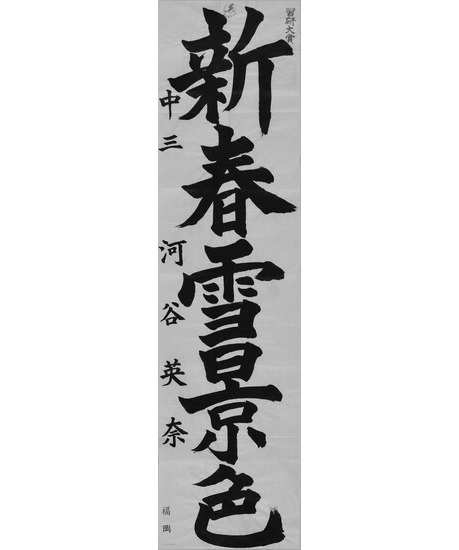 習研大賞
新春雪景色
中三 河谷英奈
福岡